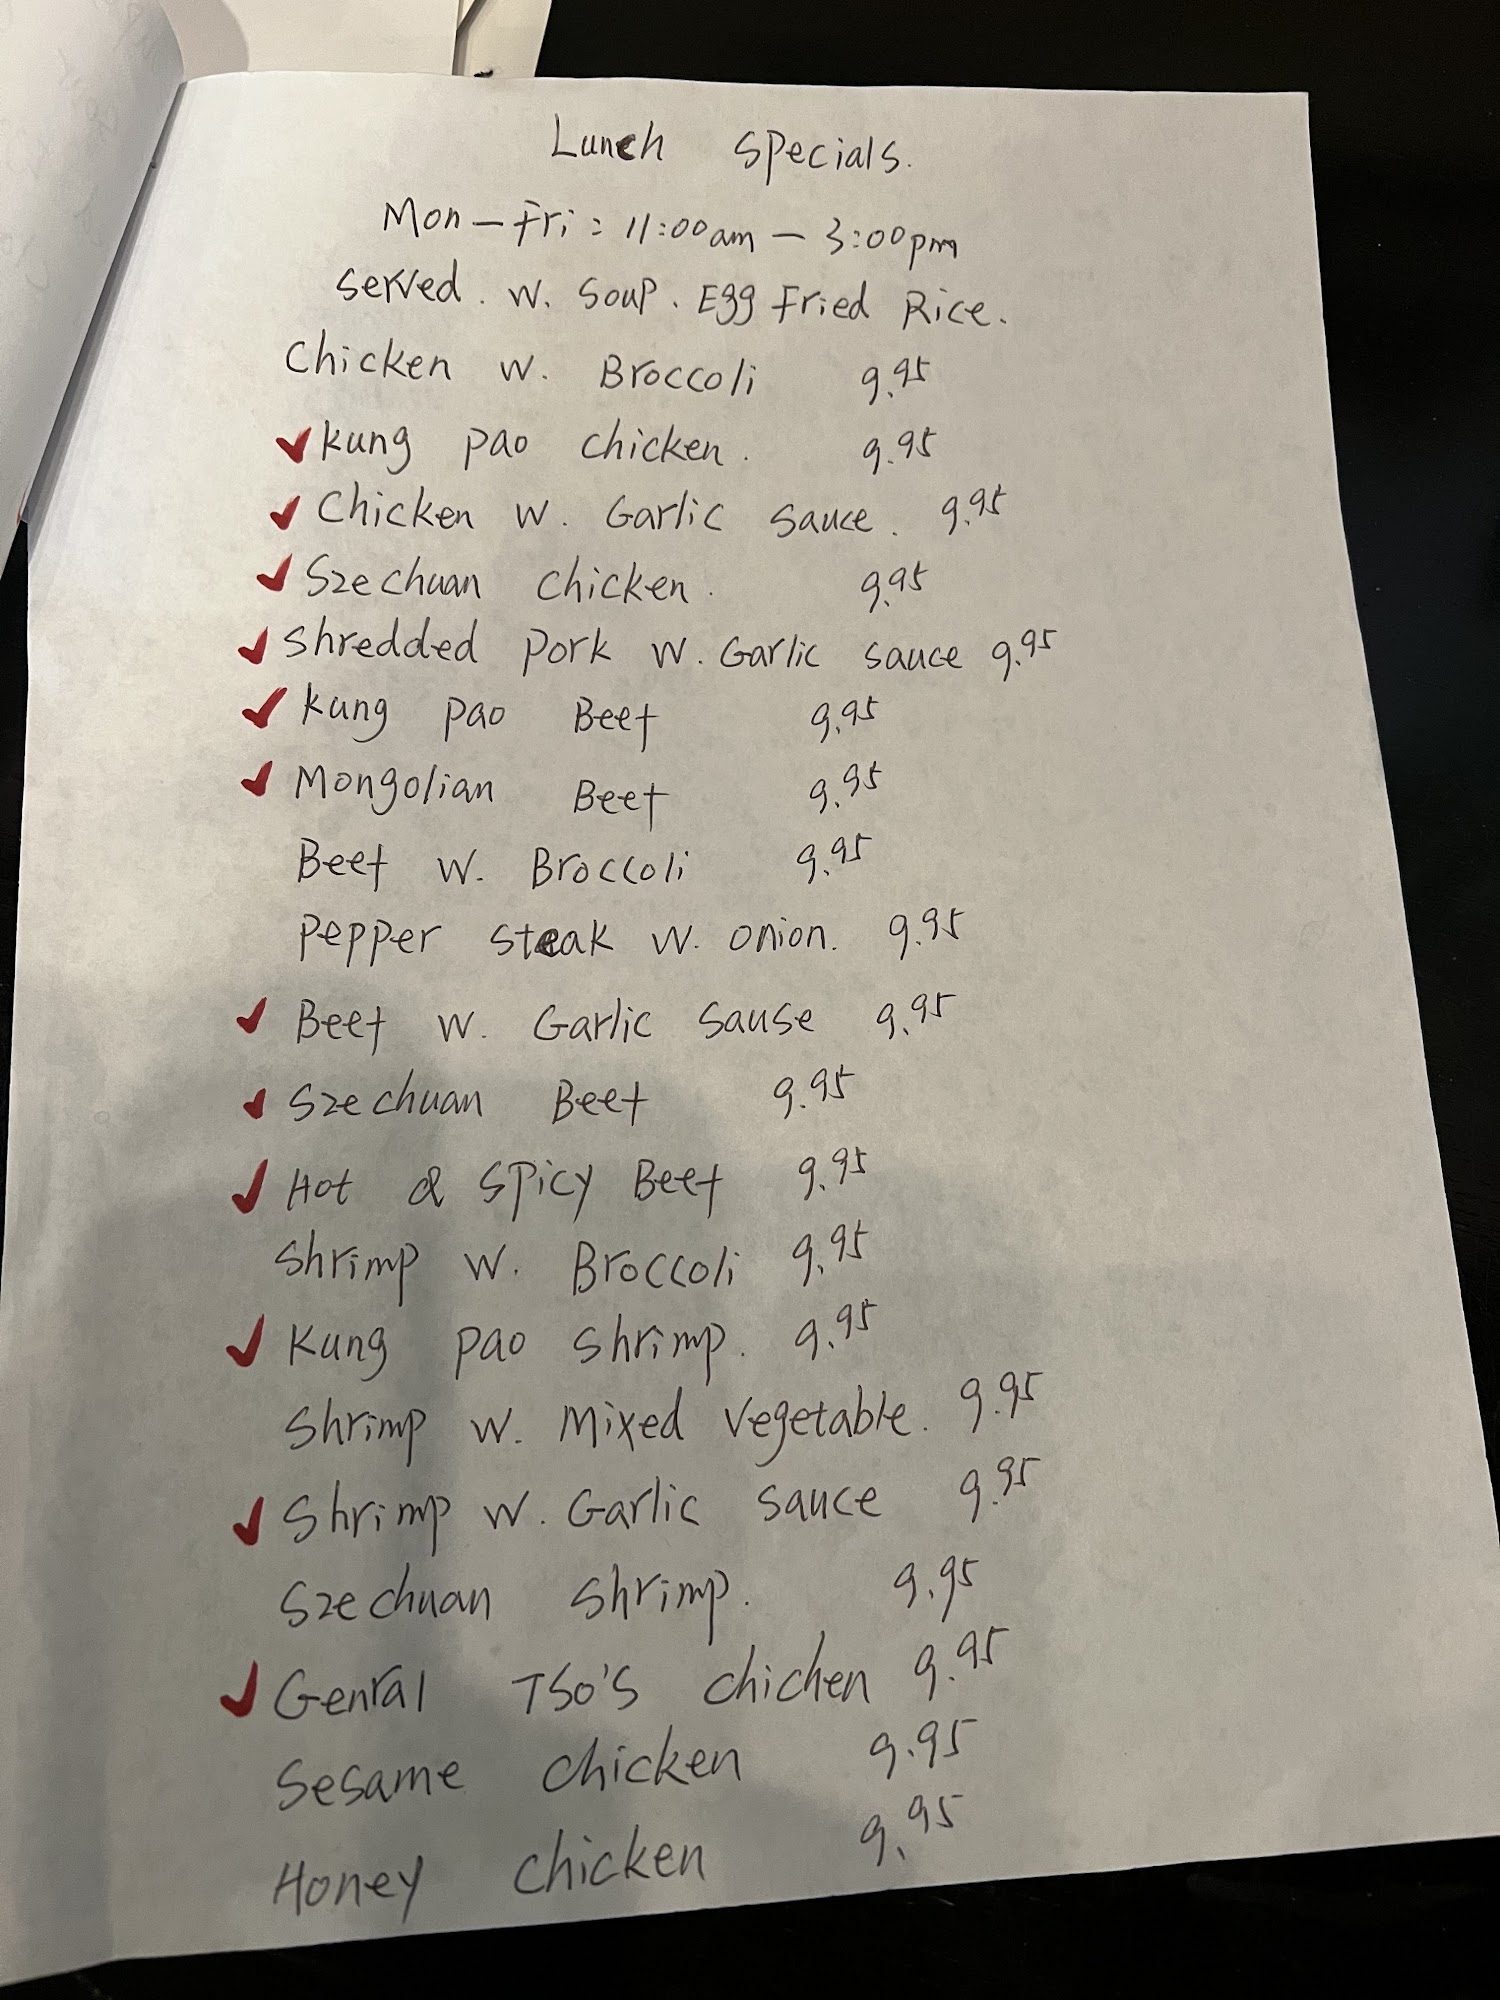 Lunch Specials.
Mon - Fri : 11:00am - 3:00pm
Served. W. Soup. Egg Fried Rice.
Chicken W. Broccoli 9.95
✓ Kung pao chicken. 9.95
✓ Chicken W. Garlic Sauce. 9.95
✓ Szechuan Chicken. 9.95
✓ Shredded pork W. Garlic Sauce 9.95
✓ Kung pao Beef 9.95
✓ Mongolian Beef 9.95
Beef W. Broccoli 9.95
Pepper Steak W. onion. 9.95
✓ Beef W. Garlic Sause 9.95
✓ Szechuan Beef 9.95
✓ Hot & Spicy Beef 9.95
Shrimp W. Broccoli 9.95
✓ Kung pao Shrimp. 9.95
Shrimp W. Mixed Vegetable. 9.95
✓ Shrimp W. Garlic Sauce 9.95
Szechuan Shrimp. 9.95
✓ Genral TSO'S Chichen 9.95
Sesame Chicken 9.95
Honey Chicken 9.95